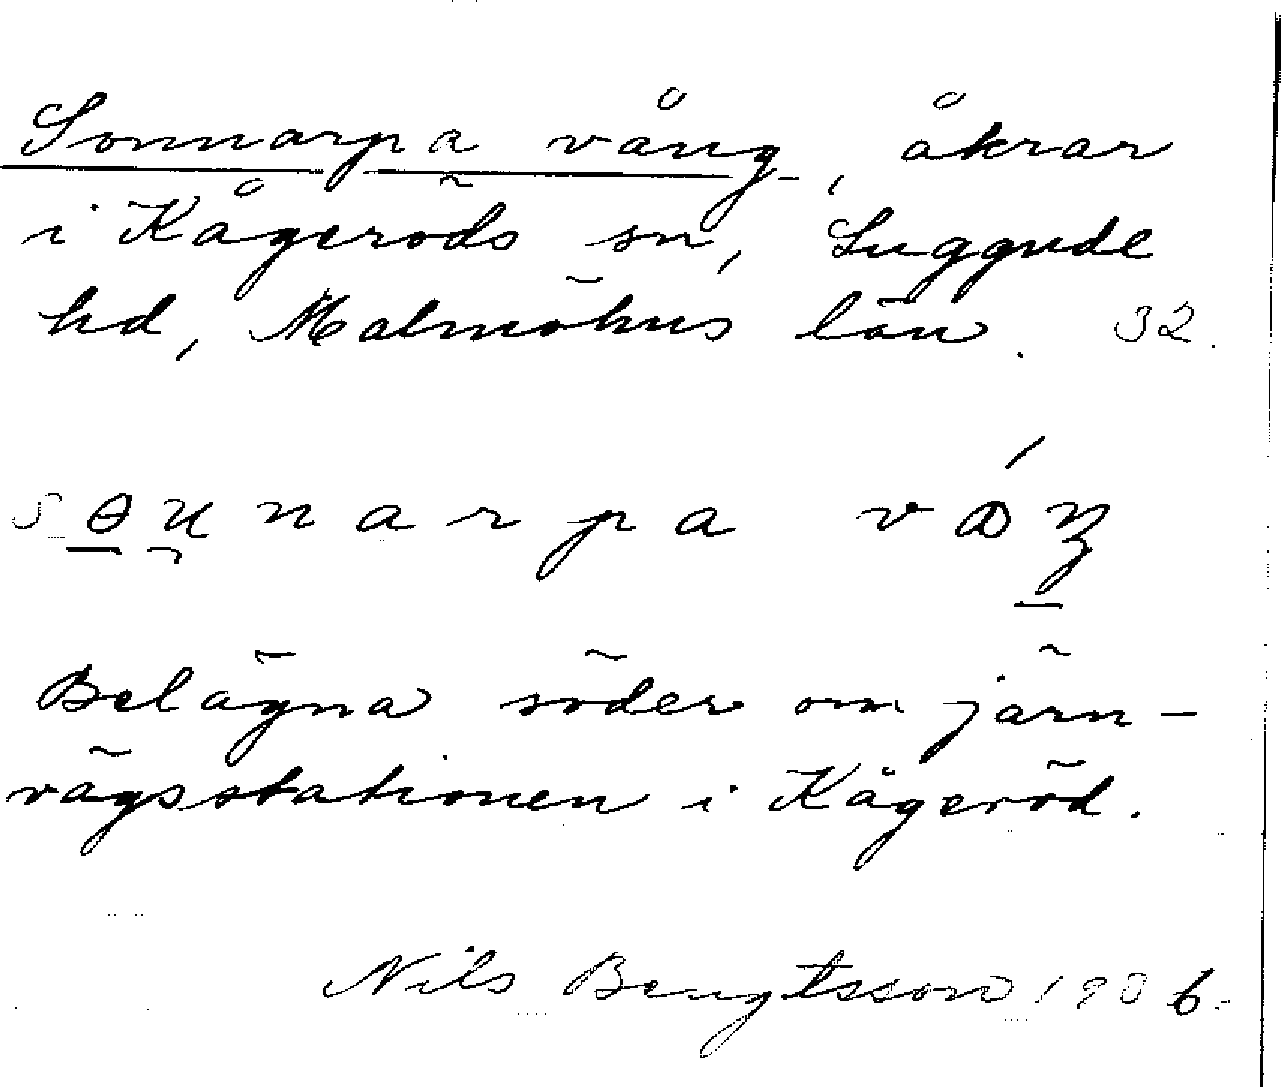 Sonnarpa vång, åkrar
i Kågeröds sn, Luggude
hd, Malmöhus län. 32.
sɵu̯narpa váŋ
Belägna söder om järn-
vägsstationen i Kågeröd.
Nils Bengtsson 1906.